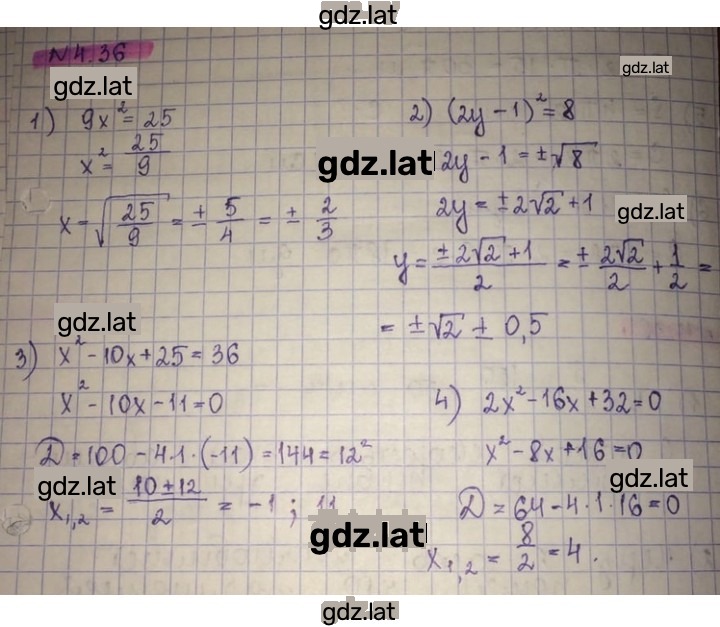 gdz.lat
N 4.36
gdz.lat
gdz.lat
1) 9x² = 25
x² = 25/9
x = √(25/9) = ± 5/4 = ± 2/3
2) (2y - 1)² = 8
gdz.lat
2y - 1 = ±√8
2y = ±2√2 + 1
gdz.lat
y = (±2√2 + 1)/2 = ± 2√2/2 + 1/2 =
= ±√2 ± 0,5
gdz.lat
3) x² - 10x + 25 = 36
x² - 10x - 11 = 0
D = 100 - 4·1·(-11) = 144 = 12²
gdz.lat
x₁,₂ = (10 ± 12)/2 = -1 ; 11
4) 2x² - 16x + 32 = 0
x² - 8x + 16 = 0
gdz.lat
D = 64 - 4·1·16 = 0
gdz.lat
x₁,₂ = 8/2 = 4.
gdz.lat